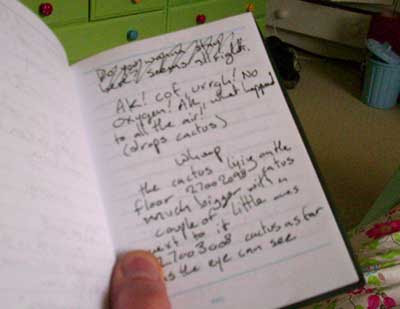 Do you wanna stay
here? seems allright.
AK! cof, urrgh! No
oxygen! Ak, what happened
to all the air!
(drops cactus)
whoop
the cactus lying on the
floor 27002098 cactus
much bigger with a
couple of little ones
next to it
27003008 cactus as far
as the eye can see